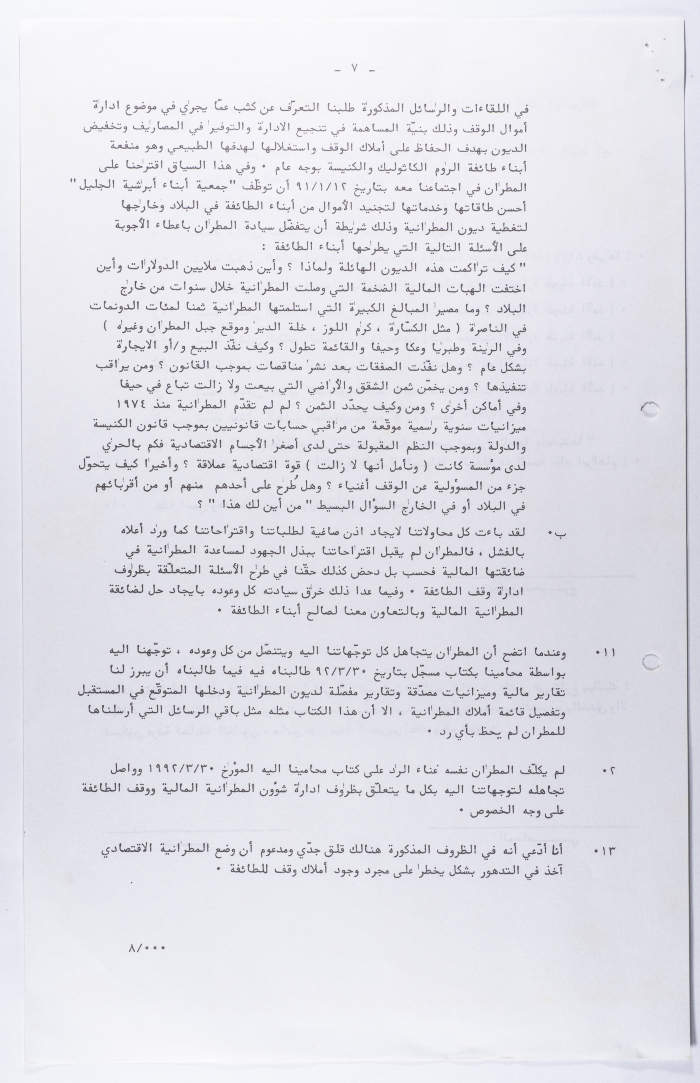 - ٧ -
في اللقاءات والرسائل المذكورة طلبنا التعرّف عن كثب عمّا يجري في موضوع ادارة
أموال الوقف وذلك بنيّة المساهمة في تنجيع الادارة والتوفير في المصاريف وتخفيض
الديون بهدف الحفاظ على أملاك الوقف واستغلالها لهدفها الطبيعي وهو منفعة
أبناء طائفة الروم الكاثوليك والكنيسة بوجه عام ٠ وفي هذا السياق اقترحنا على
المطران في اجتماعنا معه بتاريخ ٩١/١/١٢ أن توظّف "جمعية أبناء أبرشية الجليل"
أحسن طاقاتها وخدماتها لتجنيد الأموال من أبناء الطائفة في البلاد وخارجها
لتغطية ديون المطرانية وذلك شريطة أن يتفضّل سيادة المطران باعطاء الأجوبة
على الأسئلة التالية التي يطرحها أبناء الطائفة :
" كيف تراكمت هذه الديون الهائلة ولماذا ؟ وأين ذهبت ملايين الدولارات وأين
اختفت الهبات المالية الضخمة التي وصلت المطرانية خلال سنوات من خارج
البلاد ؟ وما مصير المبالغ الكبيرة التي استلمتها المطرانية ثمنا لمئات الدونمات
في الناصرة ( مثل الكسّارة ، كرم اللوز ، خلة الدير وموقع جبل المطران وغيره )
وفي الرينة وطبريا وعكا وحيفا والقائمة تطول ؟ وكيف نفّذ البيع و/أو الايجارة
بشكل عام ؟ وهل نفّذت الصفقات بعد نشر مناقصات بموجب القانون ؟ ومن يراقب
تنفيذها ؟ ومن يخمّن ثمن الشقق والأراضي التي بيعت ولا زالت تباع في حيفا
وفي أماكن أخرى ؟ ومن وكيف يحدّد الثمن ؟ لم لم تقدّم المطرانية منذ ١٩٧٤
ميزانيات سنوية رسمية موقّعة من مراقبي حسابات قانونيين بموجب قانون الكنيسة
والدولة وبموجب النظم المقبولة حتى لدى أصغر الأجسام الاقتصادية فكم بالحري
لدى مؤسسة كانت ( ونأمل أنها لا زالت ) قوة اقتصادية عملاقة ؟ وأخيرا كيف يتحوّل
جزء من المسؤولية عن الوقف أغنياء ؟ وهل طُرح على أحدهم منهم أو من أقربائهم
في البلاد أو في الخارج السؤال البسيط " من أين لك هذا " ؟
ب٠ لقد باءت كل محاولاتنا لايجاد اذن صاغية لطلباتنا واقتراحاتنا كما ورد أعلاه
بالفشل ، فالمطران لم يقبل اقتراحاتنا ببذل الجهود لمساعدة المطرانية في
ضائقتها المالية فحسب بل دحض كذلك حقّنا في طرح الأسئلة المتعلّقة بظروف
ادارة وقف الطائفة ٠ وفيما عدا ذلك خرق سيادته كل وعوده بايجاد حل لضائقة
المطرانية المالية وبالتعاون معنا لصالح أبناء الطائفة ٠
١١٠ وعندما اتضح أن المطران يتجاهل كل توجّهاتنا اليه ويتنصّل من كل وعوده ، توجّهنا اليه
بواسطة محامينا بكتاب مسجّل بتاريخ ٩٢/٣/٣٠ طالبناه فيه فيما طالبناه أن يبرز لنا
تقارير مالية وميزانيات مصدّقة وتقارير مفصّلة لديون المطرانية ودخلها المتوقّع في المستقبل
وتفصيل قائمة أملاك المطرانية ، الا أن هذا الكتاب مثله مثل باقي الرسائل التي أرسلناها
للمطران لم يحظ بأي رد ٠
٢٠ لم يكلّف المطران نفسه عناء الرد على كتاب محامينا اليه المؤرخ ١٩٩٢/٣/٣٠ وواصل
تجاهله لتوجهاتنا اليه بكل ما يتعلّق بظروف ادارة شؤون المطرانية المالية ووقف الطائفة
على وجه الخصوص ٠
١٣٠ أنا أدّعي أنه في الظروف المذكورة هنالك قلق جدّي ومدعوم أن وضع المطرانية الاقتصادي
آخذ في التدهور بشكل يخطر على مجرد وجود أملاك وقف للطائفة ٠
٨/٠٠٠